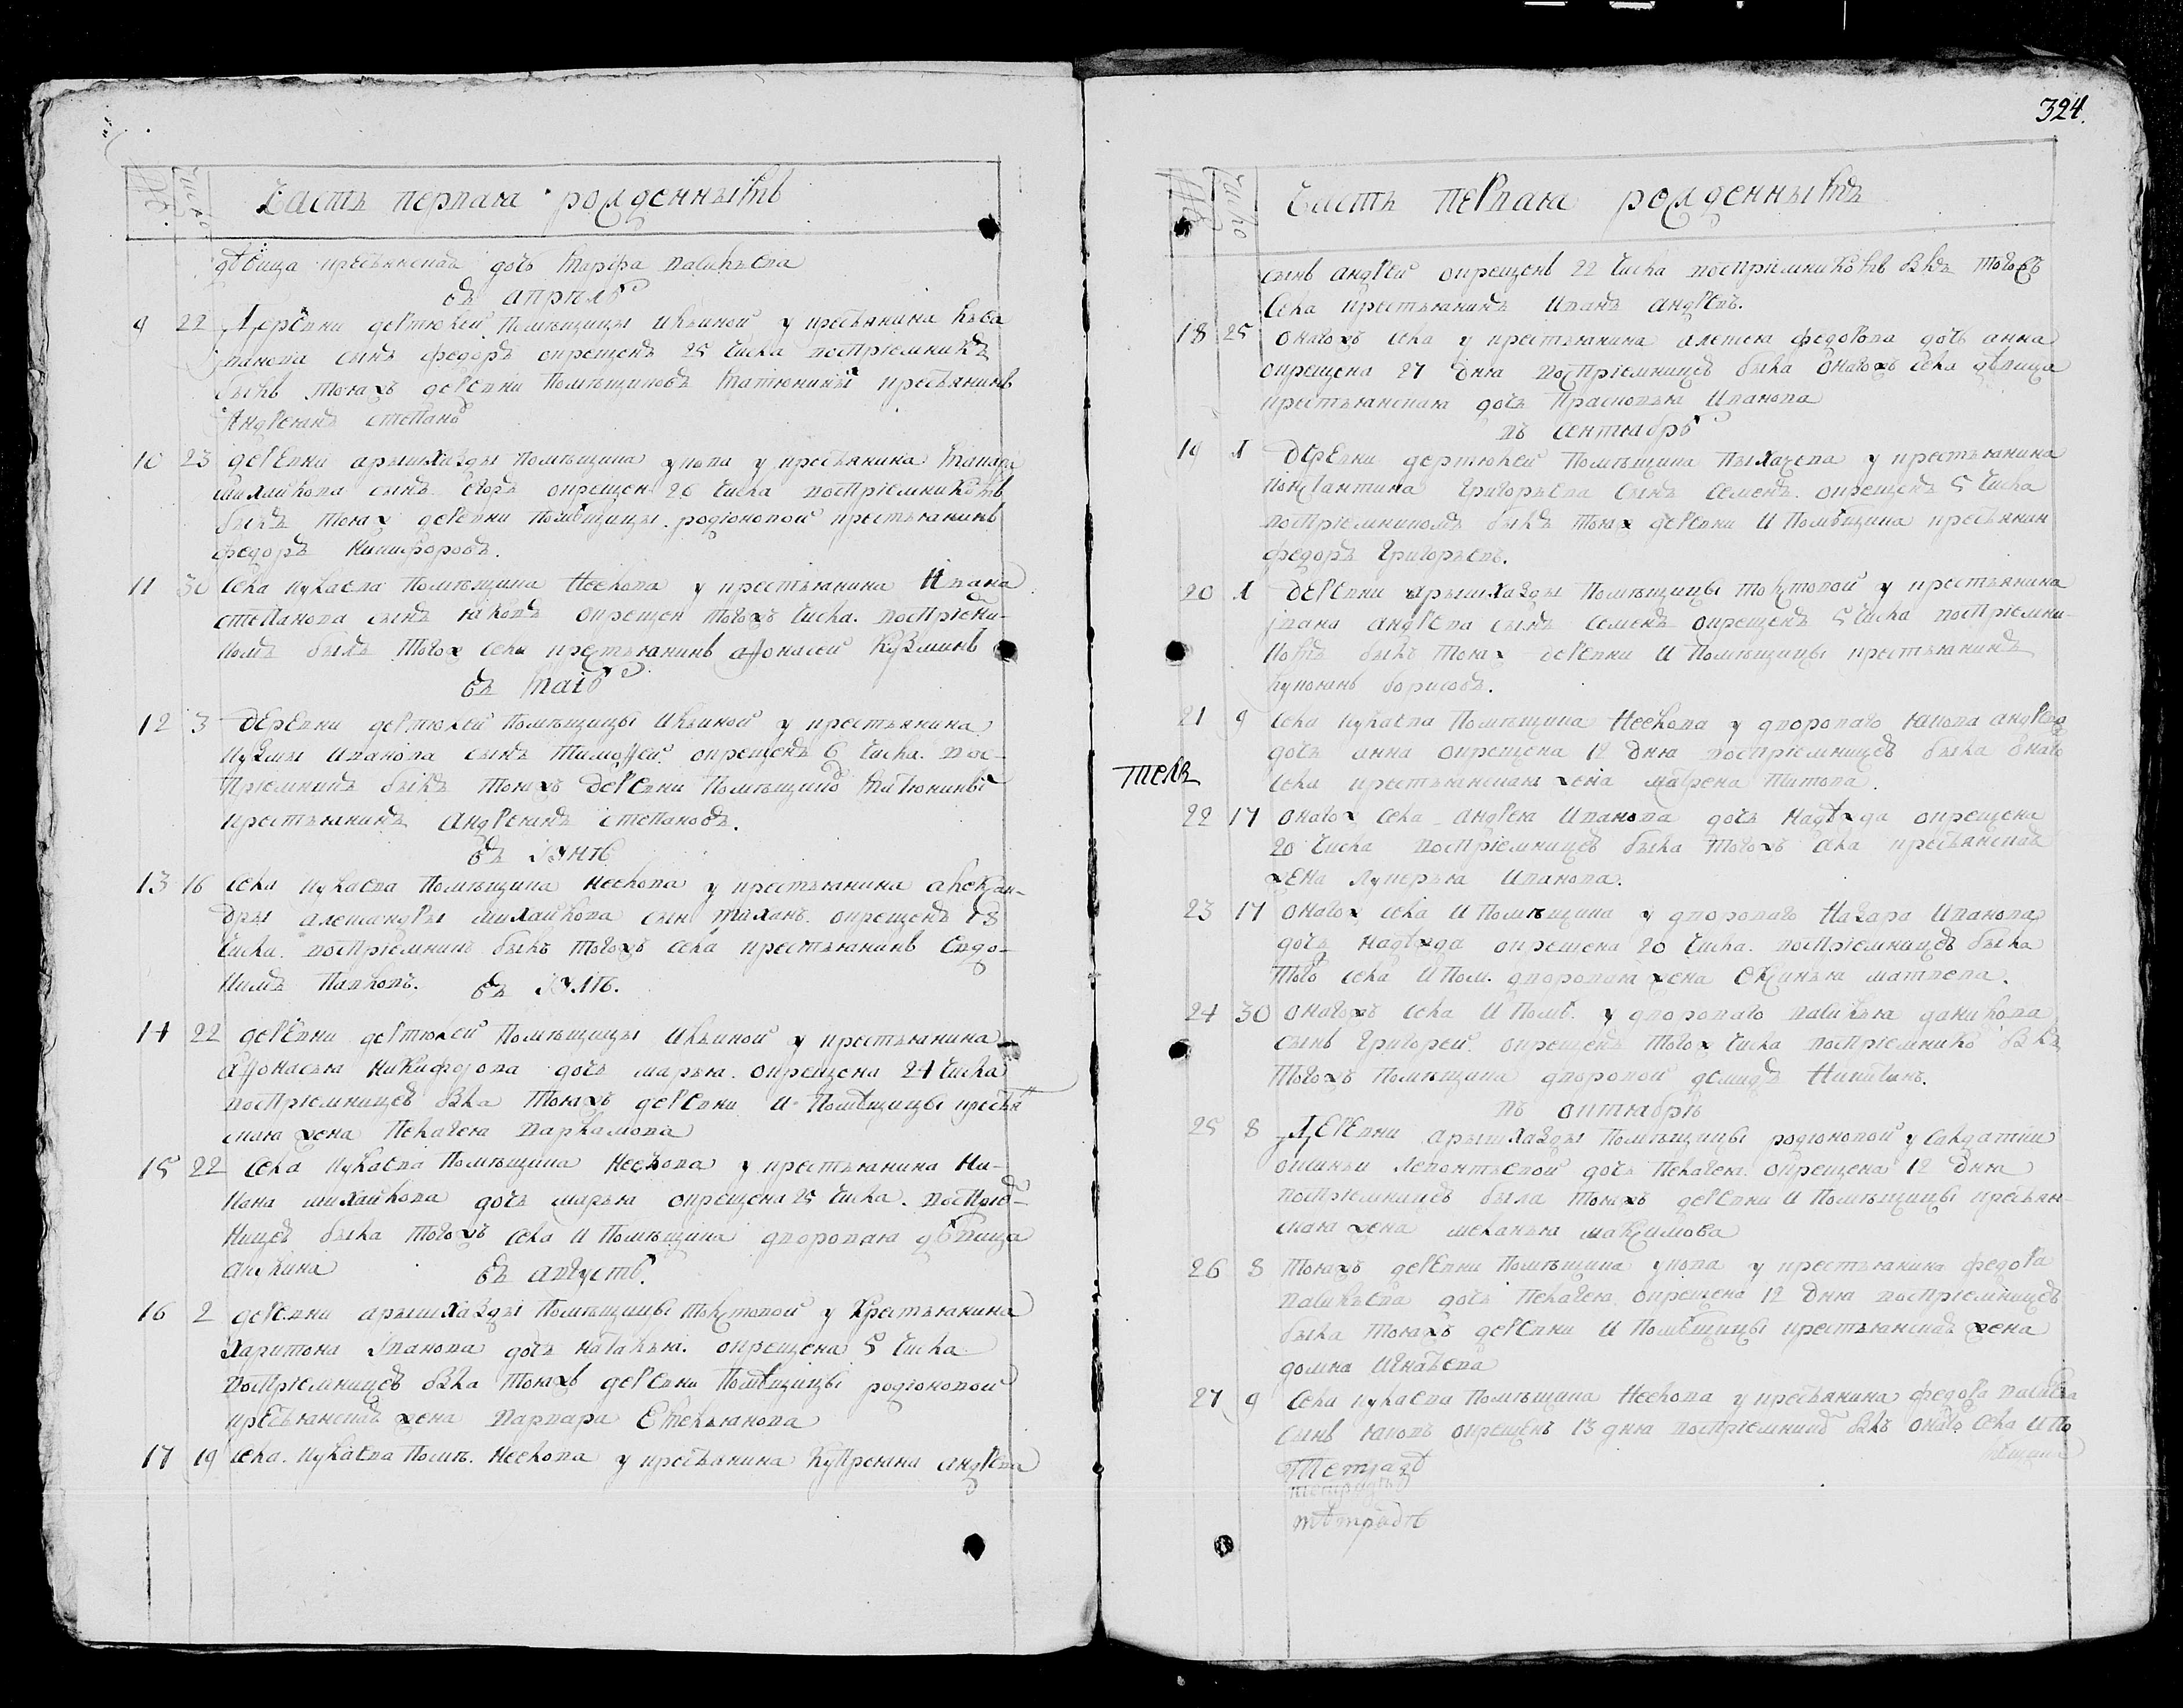 №
Число
Часть первая рожденныхъ
девица крестьянская дочь Марфа Васильева
въ апреле
9 22 Деревни дертюлей помѣщицы Ильиной у крестьянина Льва
Иванова сынъ федоръ окрещенъ 25 числа воспріемникъ
былъ тояжъ деревни помѣщиковъ Матюнины крестьянинъ
Андреянъ степанов
10 23 деревни арышхазды помѣщика укова у крестьянина Макара
михайлова сынъ егоръ окрещен 26 числа воспріемникомъ
былъ тояж деревни помѣщицы родіоновой крестьянинъ
федоръ Никифоровъ.
11 30 Села куклаева помѣщика Неелова у крестьянина Ивана
степанова сынъ яковъ окрещен тогожъ числа. воспріемни-
комъ былъ тогож села крестьянинъ афонасей Кузминъ
въ Маіе
12 3 деревни дертюлей помѣщицы Ильиной у крестьянина
Кузмы Иванова сынъ тимофей окрещенъ 6 числа. вос-
пріемникъ былъ тояжъ деревни помѣщиков Матюнины
крестьянинъ Андреянъ степановъ.
въ Іунѣ
13 16 села куклаева помѣщика неелова у крестьянина алексан-
дры александры михайлова сын тихонъ. окрещенъ 18
числа. воспріемник былъ тогожъ села крестьянинъ Евдо-
кимъ Павловъ.
въ Іулѣ.
14 22 деревни дертюлей помѣщицы Ильиной у крестьянина
Афонасья Никифорова дочь марья. окрещена 24 числа
воспріемницей была тояжъ деревни и помѣщицы крестья
ская жена Пелагея Варламова
15 22 села куклаева помѣщика Неелова у крестьянина Ни-
кона михайлова дочь марья окрещена 25 числа. воспріем-
ницей была тогожъ села и помѣщика дворовая девица
акулина
въ августе.
16 2 деревни арышхазды помѣщицы толстовой у крестьянина
Харитона Іванова дочь наталья. окрещена 5 числа
воспріемницей была тояжъ деревни помѣщицы родіоновой
крестьянская жена Варвара Емельянова
17 19 села. куклаева помѣ. Неелова у крестьянина Купреяна андреева
324.
№
Число
Часть первая рожденныхъ
сынъ андрей окрещенъ 22 числа воспріемникомъ былъ тогожъ
села крестьянинъ Иванъ андреевъ.
18 25 онагожъ села у крестьянина алексея федорова дочь анна
окрещена 27 дня воспріемницей была онагожъ села девица
крестьянская дочь Прасковья Иванова
въ сентябре
19 1 деревни дертюлей помѣщика Пыхачева у крестьянина
константина григорьева сынъ семенъ. окрещенъ 5 числа
воспріемникомъ былъ тояж деревни и помѣщика крестьянин
федоръ григорьевъ.
20 1 деревни арышхазды помѣщицы толстовой у крестьянина
івана андреева сынъ семенъ окрещенъ 5 числа воспріемни-
комъ былъ тояж деревни и помѣщицы крестьянинъ
лукоянъ борисовъ.
21 9 села куклаева помѣщика Неелова у двороваго якова андреева
дочь анна окрещена 12 дня воспріемницей была онаго
села крестьянская жена матрена титова.
22 17 онагож села андрея Иванова дочь надежда окрещена
20 числа воспріемницей была тогожъ села крестьянская
жена лукерья Иванова.
23 17 онагож села и помѣщика у двороваго Назара Иванова
дочь надежда окрещена 20 числа. воспріемницей была
того села и пом. дворовая жена Аксинья матвева.
24 30 онагожъ села и помѣ. у двороваго василья данилова
сынъ григорей. окрещенъ тогож числа воспріемнико былъ
тогожъ помѣщика дворовой демидъ Никитинъ.
въ октябре
25 8 Деревни арышхазды помѣщицы родіоновой у салдатки
оксиньи леонтьевой дочь пелагея. окрещена 12 дня
воспріемницей была тояжъ деревни и помѣщицы крестьян-
ская жена меланья максимова
26 8 тояжъ деревни помѣщика укова у крестьянина федора
васильева дочь пелагея. окрещена 12 дня воспріемницей
была тояжъ деревни и помѣщицы крестьянская жена
домна игнатьева
27 9 села куклаева помѣщика Неелова у крестьянина федора васильева
сынъ яковъ окрещенъ 13 дня воспріемникъ былъ онаго села и по
мѣщика
тетрадь
тетрадь
тетрадь